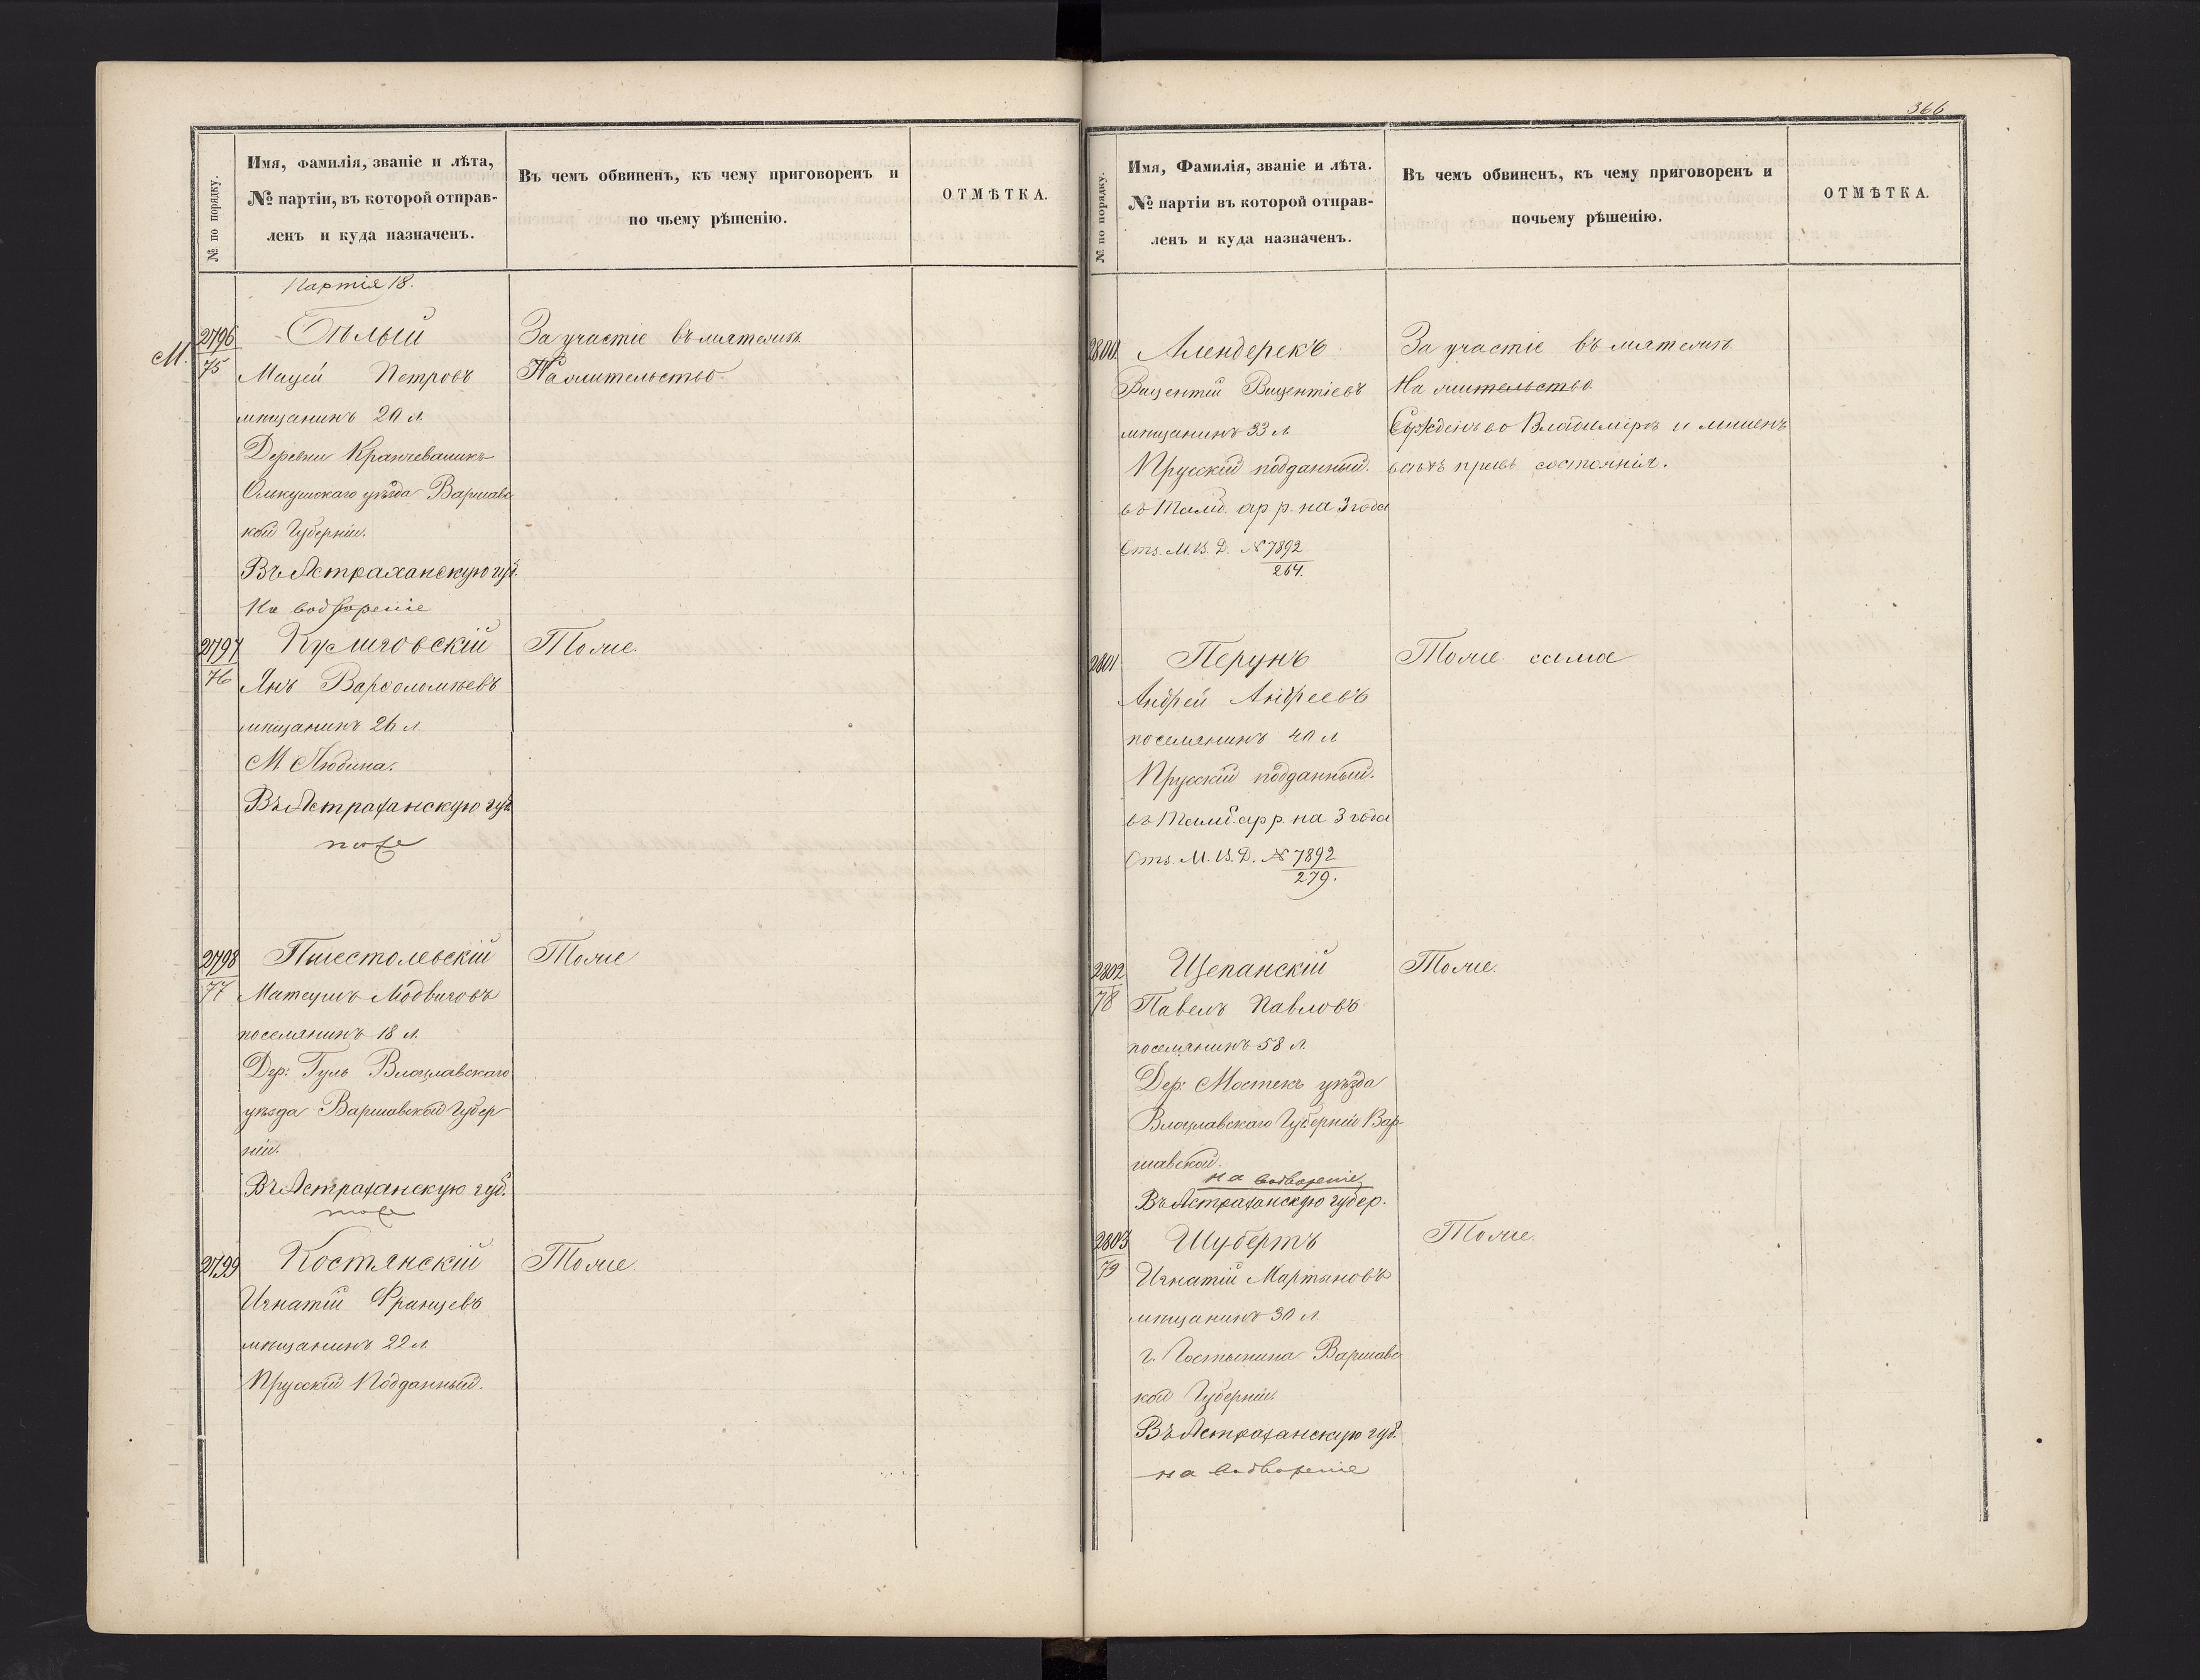 366
№ по порядку.
Имя, Фамилія, званіе и лѣта,
№ партіи, въ которой отправ-
ленъ и куда назначенъ.
Въ чемъ обвиненъ, къ чему приговоренъ и
по чьему рѣшенію.
ОТМѢТКА.
Партія 18.
М.
2796
75
Бѣлый
Мацей Петровъ
мѣщанинъ 20 л.
Деревни
Олькушскаго уѣзда Варшавс
кой Губерніи.
Въ Астраханскую губ.
На водвореніе
За участіе въ мятежѣ.
На жительство
2797
76
Кулиговскій
Янъ Варфоломѣевъ
мѣщанинъ 26 л.
М. Людина.
Въ Астраханскую губ.
тоже
Тоже.
2798
77
Матеушъ Людвиговъ
поселянинъ 18 л.
Дер: Гуль Влоцлавскаго
уѣзда Варшавской Губер
ніи.
Въ Астраханскую губ.
тоже
Тоже
2799
Костянскій
Игнатій Францевъ
мѣщанинъ 22 л.
Прусскій Подданный.
Тоже.
№ по порядку.
Имя, Фамилія, званіе и лѣта.
№ партіи въ которой отправ-
ленъ и куда назначенъ.
Въ чемъ обвиненъ, къ чему приговоренъ и
почьему рѣшенію.
ОТМѢТКА.
2800
Алендерекъ
Вицентій Вицентіевъ
мѣщанинъ 33 л.
Прусскій подданный.
въ Тамб. ар. р. на 3 года
Отз. М. В. Д. № 7892
264.
За участіе въ мятежѣ.
На жительство.
Сужденъ во Владимірѣ и лишенъ
всѣхъ правъ состоянія.
2801
Перунъ
Андрей Андреевъ
поселянинъ 40 л.
Прусскій подданный.
въ Тамб. ар. р. на 3 года
Отз. М. В. Д. № 7892
279.
Тоже самое
2802
78
Щепанскій
Павелъ Павловъ
поселянинъ 58 л.
Дер: Мостекъ уѣзда
Влоцлавскаго Губерніи Вар-
шавской.
на водвореніе
Въ Астраханскую губер.
Тоже.
2803
79
Шубертъ
Игнатій Мартыновъ
мѣщанинъ 30 л.
г. Гостынина Варшавс
кой Губерніи.
Въ Астраханскую губ.
на водвореніе
Тоже.